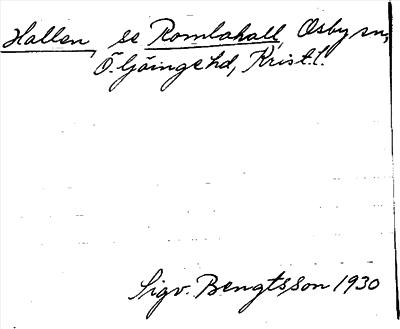 Hallen, se Romlahall, Osby sn,
Ö. Göinge hd, Krist. l.
Sigv. Bengtsson 1930